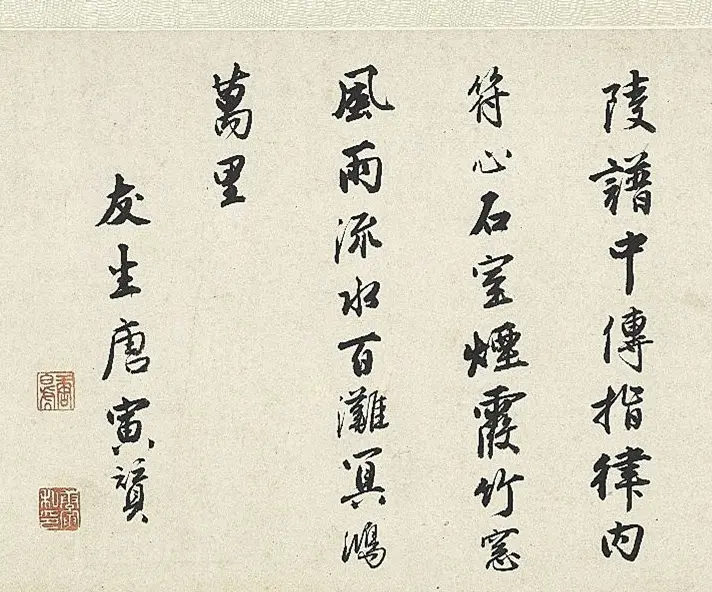 陵譜中傳指律内
符心石室煙霞竹窓
風雨流水百灘冥鴻
萬里
友生唐寅贊